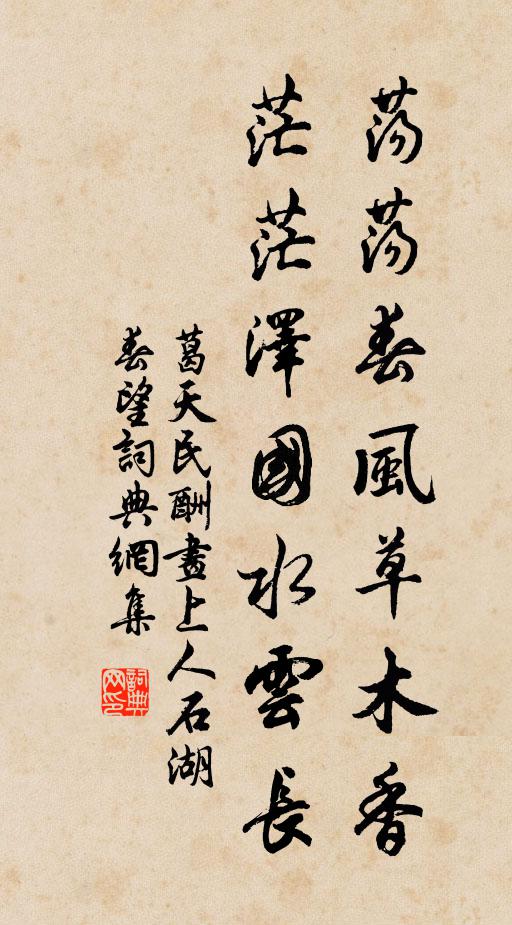 蕩蕩春風草木香
茫茫澤國水雲長
葛天民酬畫上人石湖
春望詞典網集
詞典網印